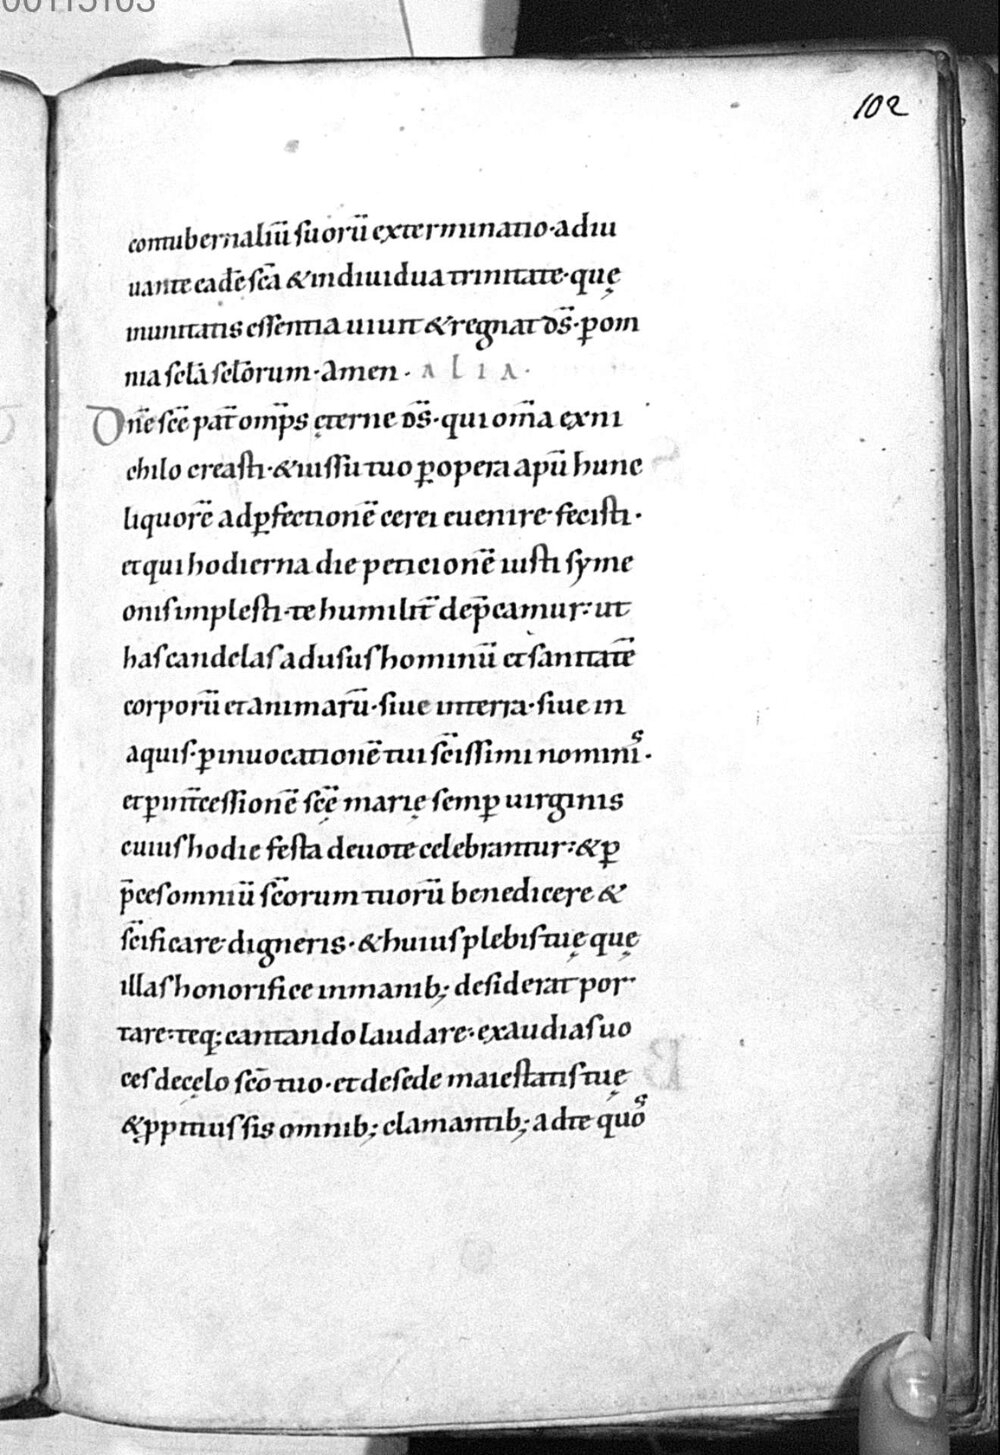 00115103
102
contubernaliū suorū exterminatio·adiu
uante eadē scā & indiuidua trinitate·quę
inunitatis essentia uiuit & regnat dS̄·ꝑ om
nia sclā sclōrum·Amen· ALIA·
Dn̄e scē pat̄ om̄ps ęterne dS̄·qui om̄a exni
chilo creasti·& iussu tuo ꝑ opera apū hunc
liquorē adꝑfectionē cerei euenire fecisti·
et qui hodierna die peticionē iusti syme
onis implesti·te humilit̄ dep̄camur: ut
has candelas adusus hominū et sanitatē
corporū et animarū·siue interra·siue in
aquis·ꝑ inuocationē tui scīssimi nominiˢ·
et ꝑ int̄cessionē scę̄ marię semꝑ uirginis
cuius hodie festa deuote celebrantur: & ꝑ
p̄ces omniū scōrum tuorū benedicere &
scīficare digneris·& huius plebis tuę quę
illas honorifice inmanib; desiderat por
tare: teq; cantando laudare·exaudias uo
ces decęlo scō tuo·et desede maiestatis tuę
& ꝓpitius sis omnib; clamantib; adte quoˢ